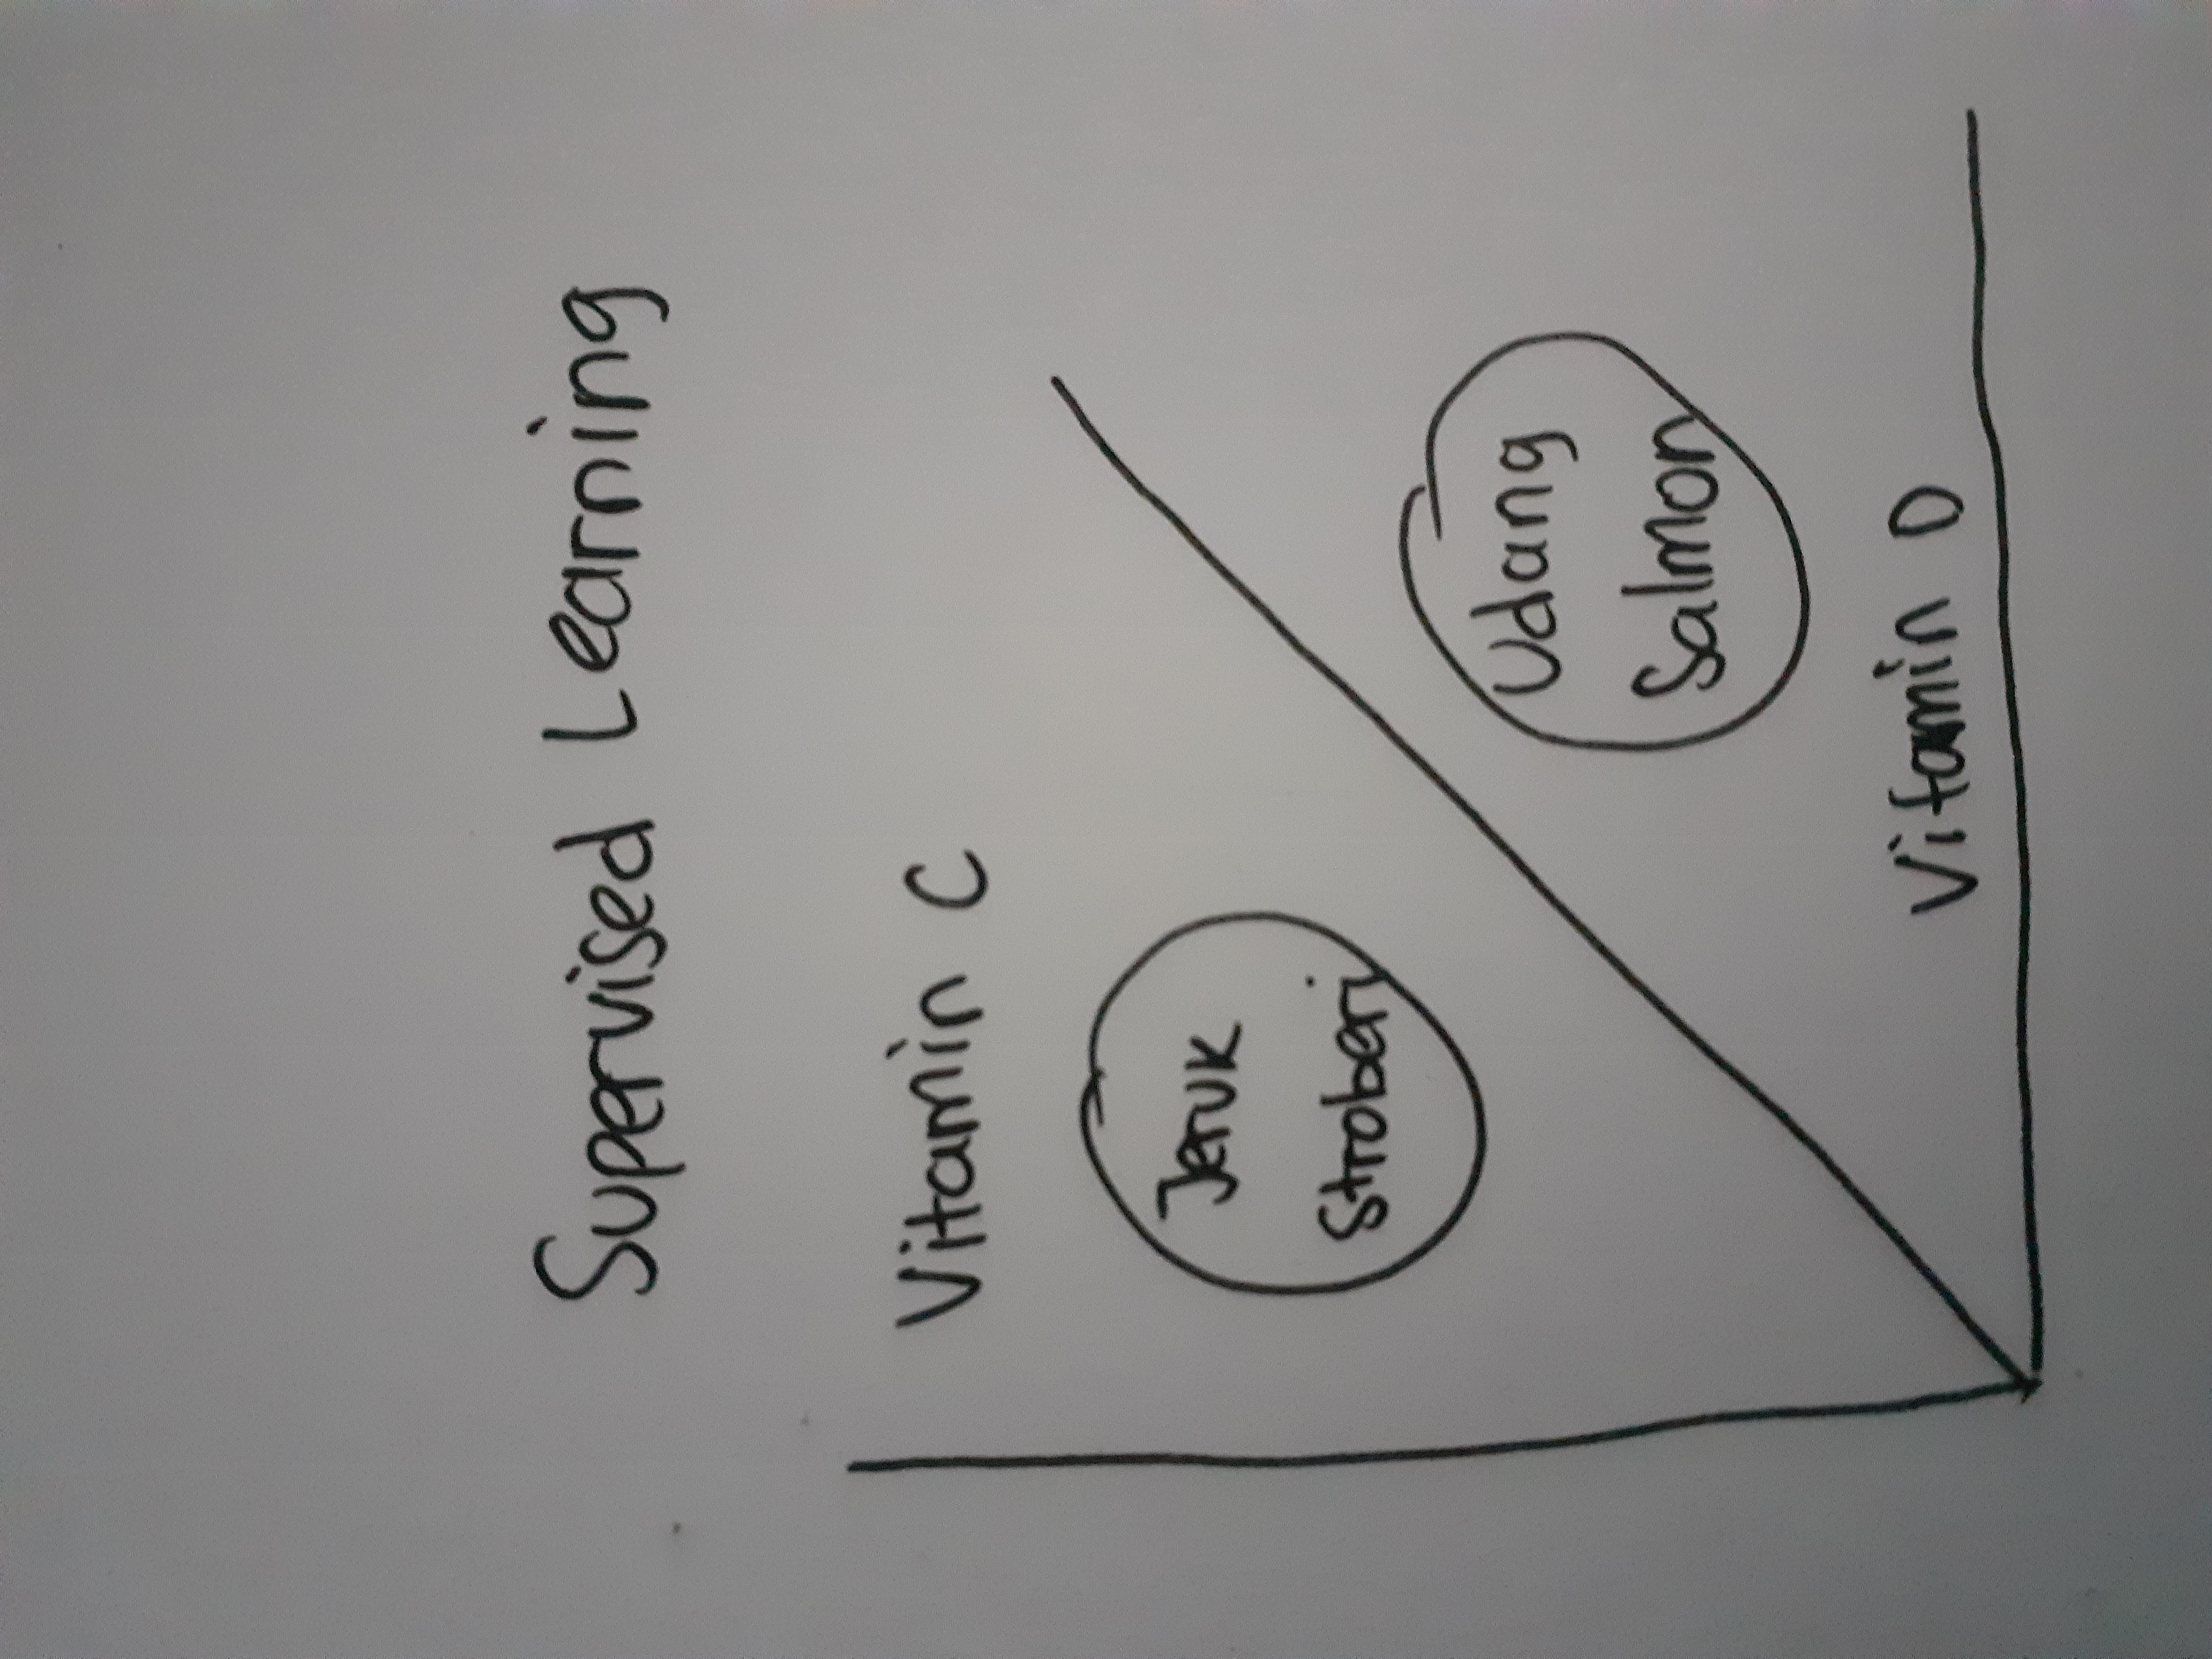 Supervised Learning
Vitamin C
Jeruk
Stroberi
Udang
Salmon
Vitamin D